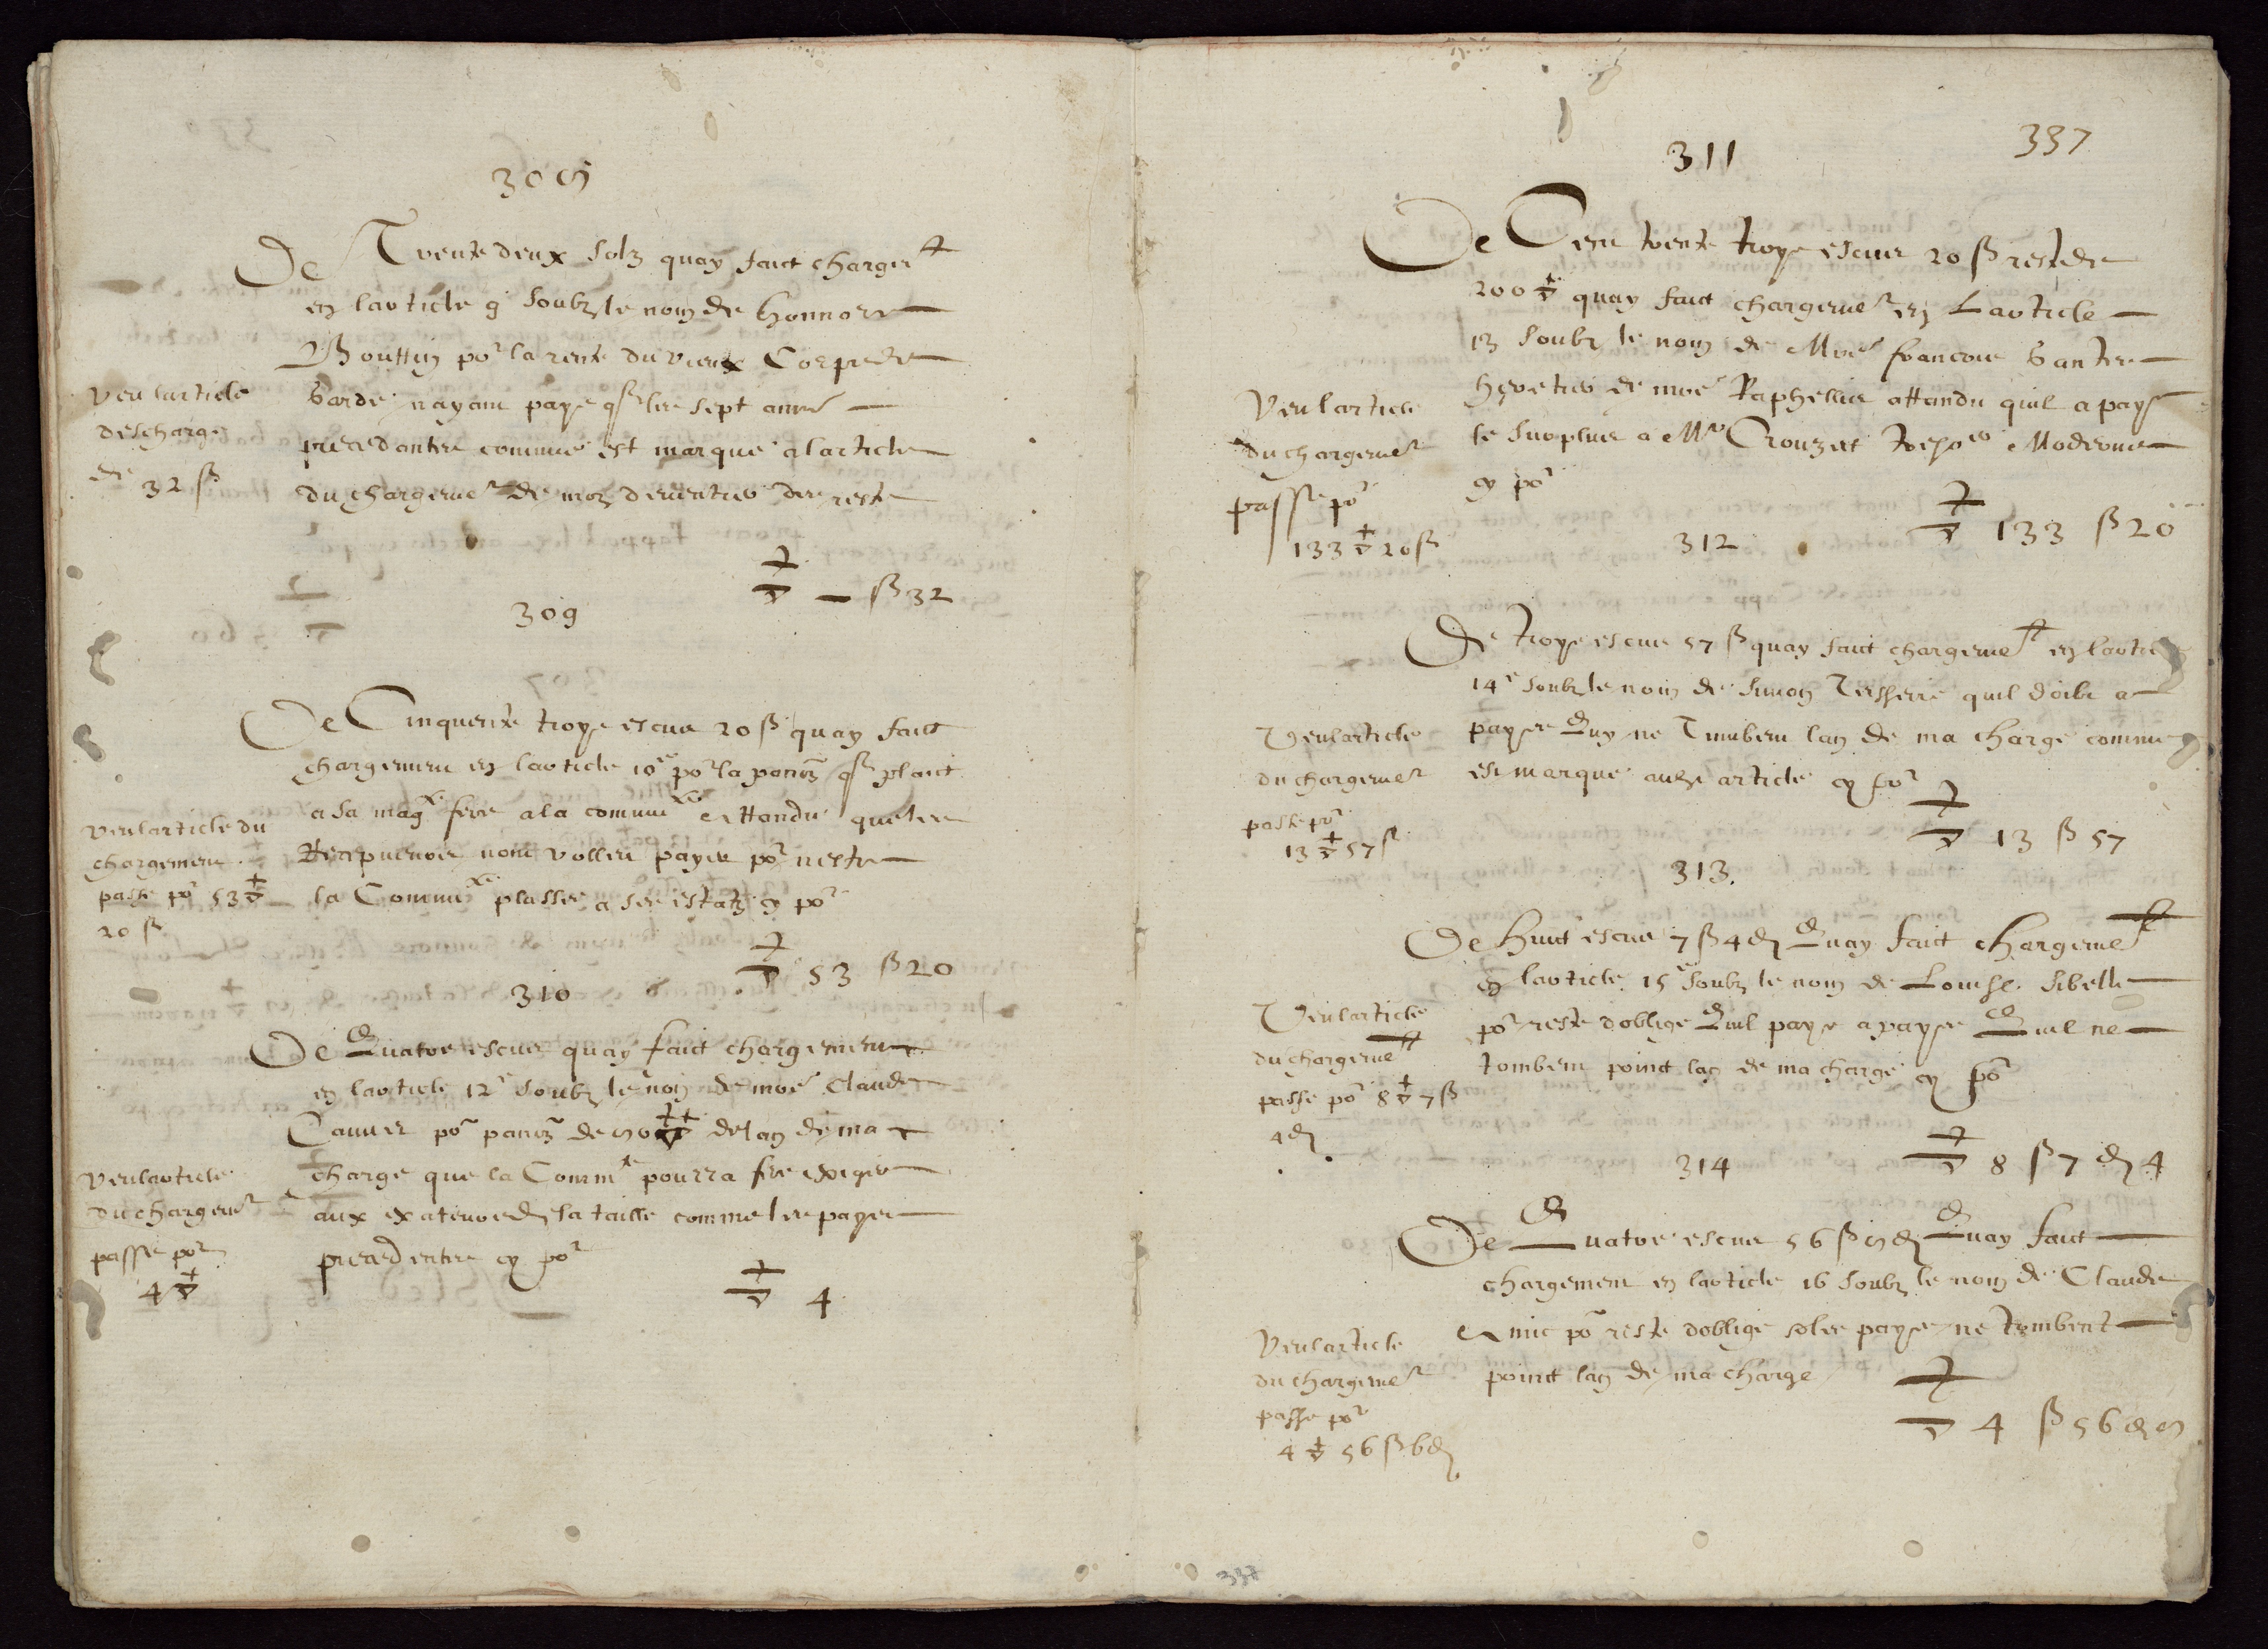 308
De Trente deux solz quay faict chargemt
en larticle 9 soubz le nom de honnore
Bouttin por la rente du vieux Corps de
garde nayant paye que les sept annes
precedantes comme est marque a larticle
du chargemet de mon deventier des reste
Veu larticle
descharge
de 32 ß
— ß 32
309
De Cinquente troys escus 20 ß quay faict
chargement en larticle 10e por la pention que plaict
a sa mag fere a la commu Attandu que les
nont vollen payer por nestre
la Commu plassee a ses estatz cy por
Veu larticle du
chargement
passe por 53
20 ß
53 ß 20
310
De Quatre escus quay faict chargement
en larticle 12e soubz le nom de moe Claude
Cauver por de lan de ma
charge que la Commte pourra fere exiger
aux la taille comme les payes
precedentes cy por
Veu larticle
du chargemet
passe por
4
4
337
311
De Cent trente troys escus 20 ß reste de
200 quay faict chargemet en Larticle
13 soubz le nom de Moe francois
heretier de moe Raphellis attandu quil a paye
le surplus a Mr Crouzet trezo Moderne
cy por
Veu larticle
du chargemet
passe por
133 20 ß
133 ß 20
312
De troys escus 57 ß quay faict chargemet en lartic
14e soubz le nom de Simon Teissere quil doibt a
payer Quy ne Tumbent lan de ma charge comme
est marque audt article cy por
Veu larticle
du chargemet
passe por
13 57 ß
13 ß 57
313.
De huict escus 7 ß 4 d Quay faict chargemet
en larticle 15e soubz le nom de Louise Sibelle
por reste doblige Quil paye a paye Quil ne
tombent poinct lan de ma charge cy por
Veu larticle
du chargemet
passe por 8 7 ß
4 d
8 ß 7 d 4
314
De Quatre escus 56 ß 6 d Quay faict
chargement en larticle 16 soubz le nom de Claude
Amic por reste doblige paye ne tombent
poinct lan de ma charge
Veu larticle
du chargemet
passe por
4 56 ß 6 d
4 ß 56 d 6
337